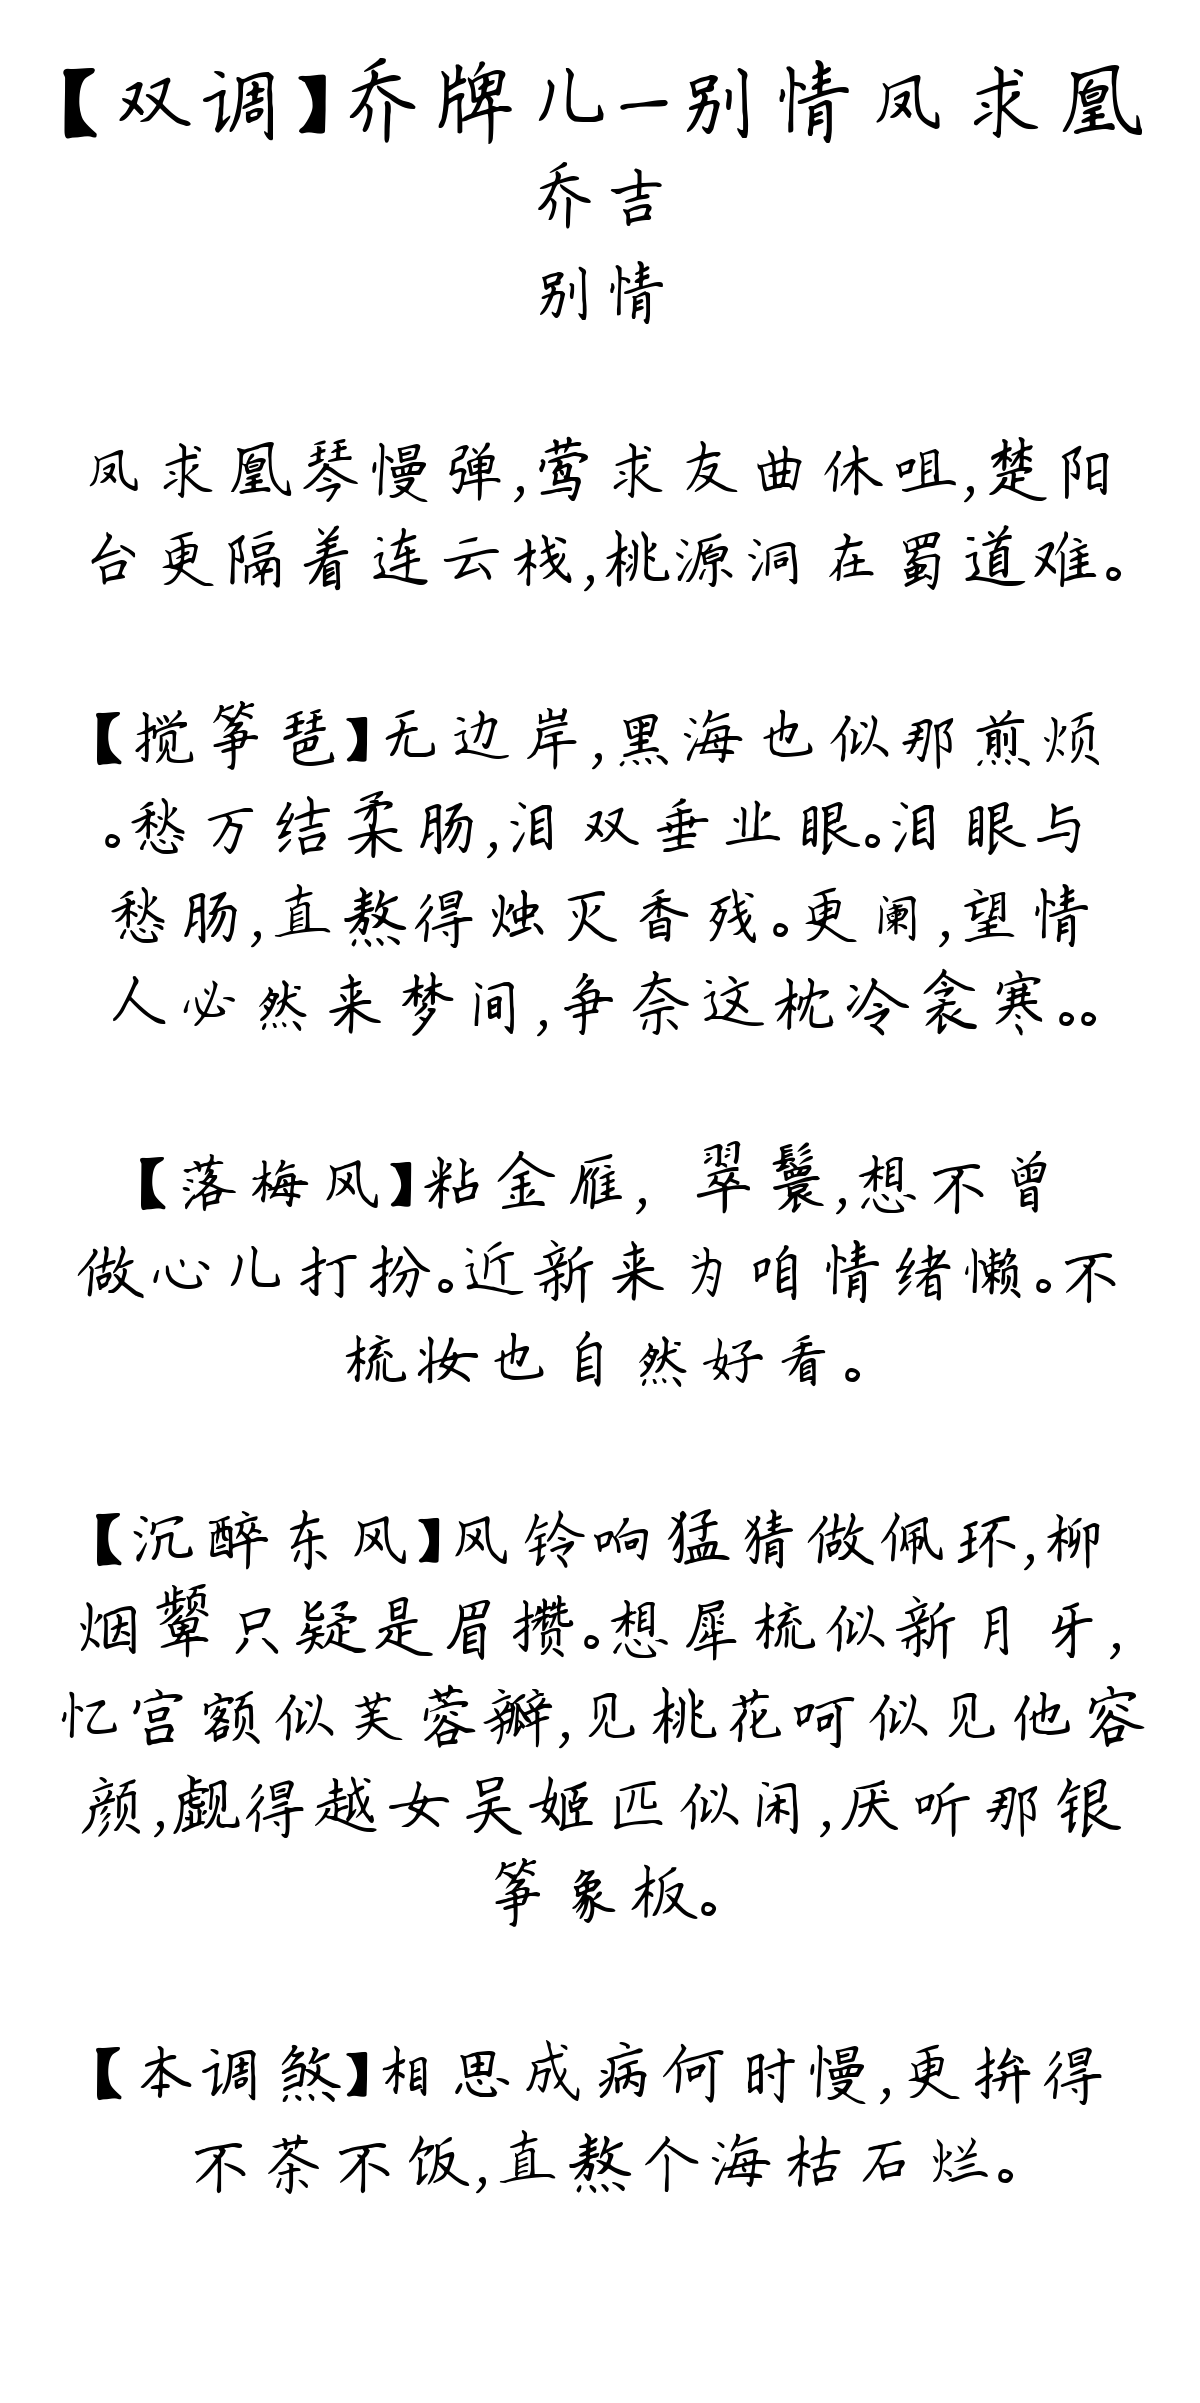 【双调】乔牌儿-别情凤求凰
乔吉
别情
凤求凰琴慢弹,莺求友曲休咀,楚阳
台更隔着连云栈,桃源洞在蜀道难。
【搅筝琶】无边岸,黑海也似那煎烦
。愁万结柔肠,泪双垂业眼。泪眼与
愁肠,直熬得烛灭香残。更阑,望情
人必然来梦间,争奈这枕冷衾寒。。
【落梅风】粘金雁，翠鬟,想不曾
做心儿打扮。近新来为咱情绪懒。不
梳妆也自然好看。
【沉醉东风】风铃响猛猜做佩环,柳
烟颦只疑是眉攒。想犀梳似新月牙,
忆宫额似芙蓉瓣,见桃花呵似见他容
颜,觑得越女吴姬匹似闲,厌听那银
筝象板。
【本调煞】相思成病何时慢,更拚得
不茶不饭,直熬个海枯石烂。